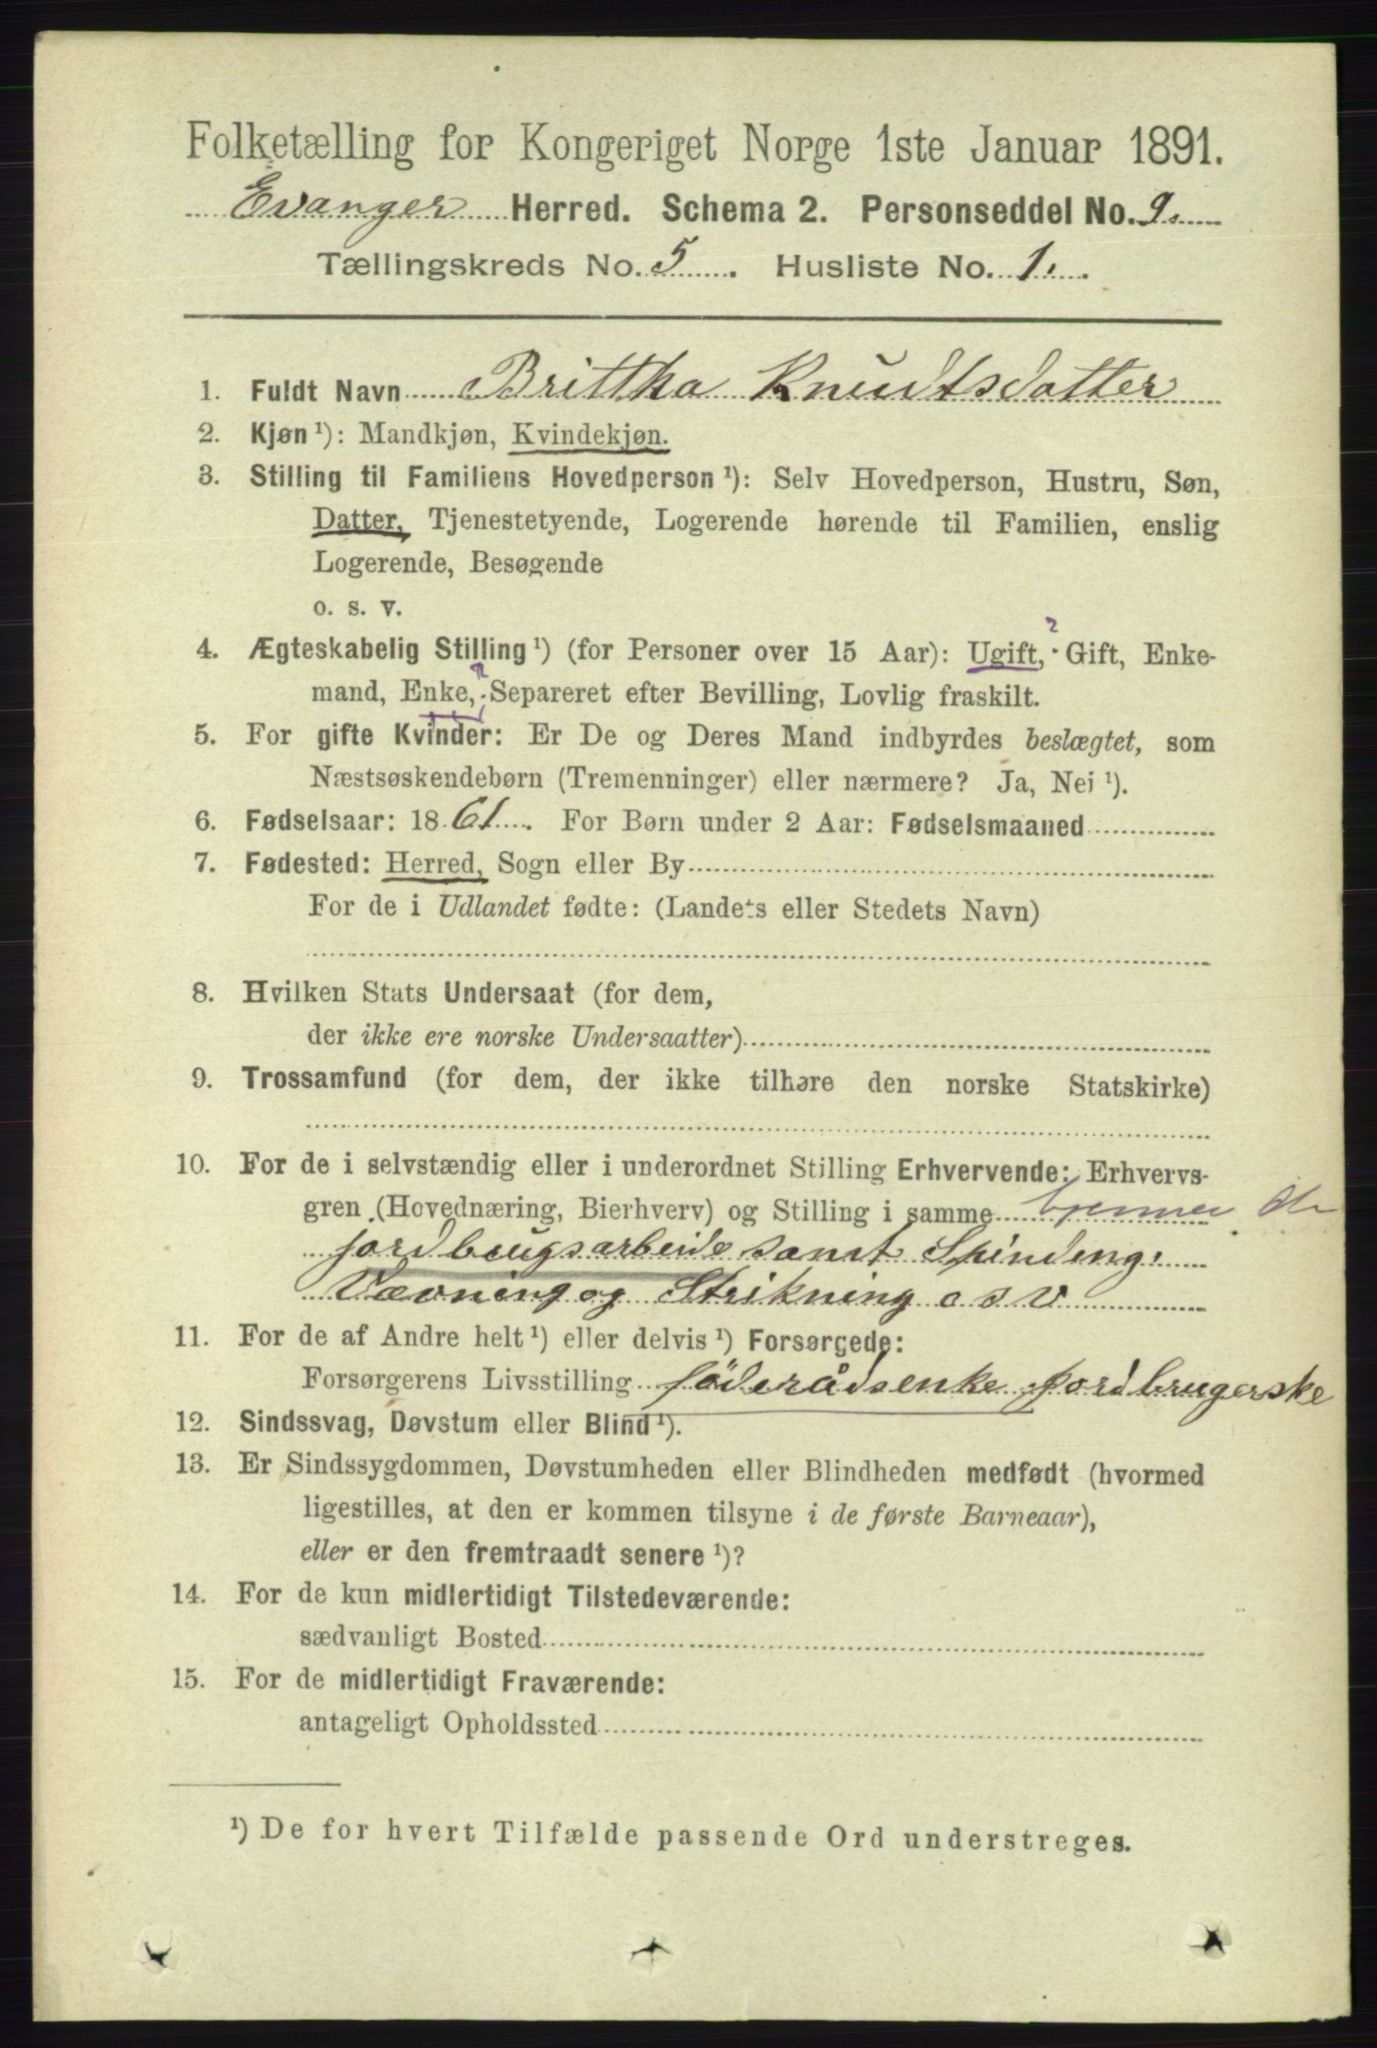 Folketælling for Kongeriget Norge 1ste Januar 1891.
Evanger Herred. Schema 2. Personseddel No. 9.
Tællingskreds No. 5. Husliste No. 1.
1. Fuldt Navn Brittha Knudtsdatter
2. Kjøn ¹): Mandkjøn, Kvindekjøn.
3. Stilling til Familiens Hovedperson ¹): Selv Hovedperson, Hustru, Søn,
Datter, Tjenestetyende, Logerende hørende til Familien, enslig
Logerende, Besøgende
o. s. v.
?
4. Ægteskabelig Stilling ¹) (for Personer over 15 Aar): Ugift, Gift, Enke-
mand, Enke, ? Separeret efter Bevilling, Lovlig fraskilt.
5. For gifte Kvinder: Er De og Deres Mand indbyrdes beslægtet, som
Næstsøskendebørn (Tremenninger) eller nærmere? Ja, Nei ¹).
6. Fødselsaar: 1861. For Børn under 2 Aar: Fødselsmaaned
7. Fødested: Herred, Sogn eller By
For de i Udlandet fødte: (Landets eller Stedets Navn)
8. Hvilken Stats Undersaat (for dem,
der ikke ere norske Undersaatter)
9. Trossamfund (for dem, der ikke tilhøre den norske Statskirke)
10. For de i selvstændig eller i underordnet Stilling Erhvervende: Erhvervs-
gren (Hovednæring, Bierhverv) og Stilling i samme
jordbrugsarbeide samt Spinding,
Vævning og Strikning o s v
11. For de af Andre helt ¹) eller delvis ¹) Forsørgede:
Forsørgerens Livsstilling föderådsenke jordbrugerske
12. Sindssvag, Døvstum eller Blind ¹).
13. Er Sindssygdommen, Døvstumheden eller Blindheden medfødt (hvormed
ligestilles, at den er kommen tilsyne i de første Barneaar),
eller er den fremtraadt senere ¹)?
14. For de kun midlertidigt Tilstedeværende:
sædvanligt Bosted
15. For de midlertidigt Fraværende:
antageligt Opholdssted
¹) De for hvert Tilfælde passende Ord understreges.